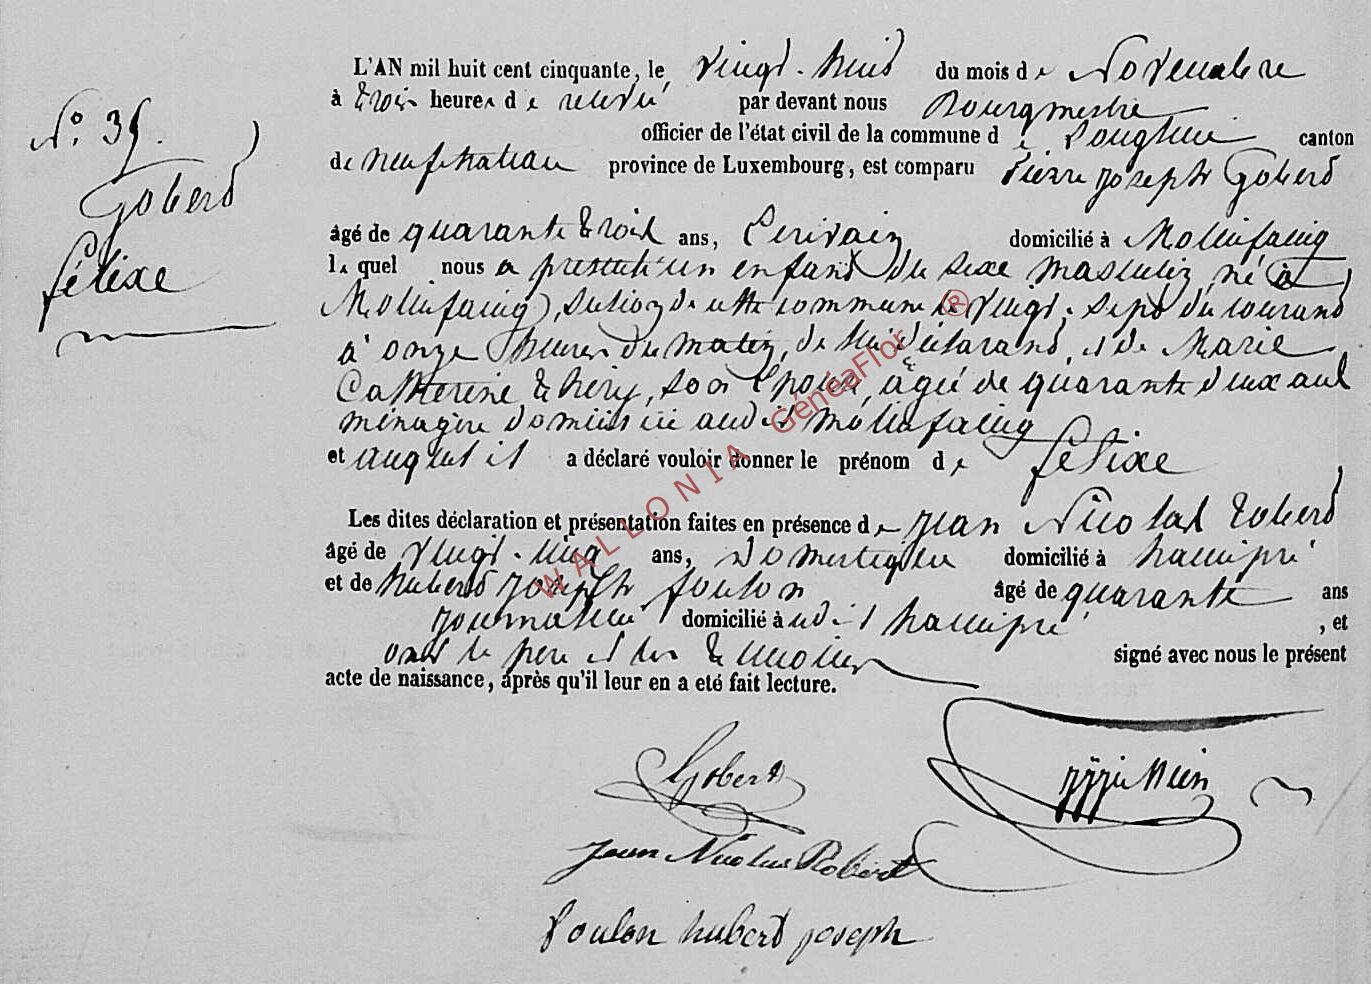 N.° 35.
Gobert
félixe
L'AN mil huit cent cinquante, le vingt-huit du mois de Novembre
à trois heures de relevée par devant nous Bourgmestre
officier de l'état civil de la commune de Longlier canton
de neufchateau province de Luxembourg, est comparu Pierre Joseph Gobert
âgé de quarante trois ans, Ecrivain domicilié à Molinfaing
lequel nous a présenté un enfant du sexe masculin, né à
Molinfaing, section de cette commune le vingt-sept du courant
à onze heures du matin, de lui déclarant, et de Marie
Catherine Théry, son épouse, âgée de quarante deux ans
ménagère domiciliée audit molinfaing
et auquel il a déclaré vouloir donner le prénom de félixe
Les dites déclaration et présentation faites en présence de Jean Nicolas Robert
âgé de vingt-cinq ans, Domestique domicilié à hamipré
et de hubert Joseph foulon âgé de quarante ans
journalier domicilié audit hamipré, et
ont le père et les témoins signé avec nous le présent
acte de naissance, après qu'il leur en a eté fait lecture.
Gobert
Jean Nicolas Robert
foulon hubert joseph
WALLONIA GénéaFlor ®